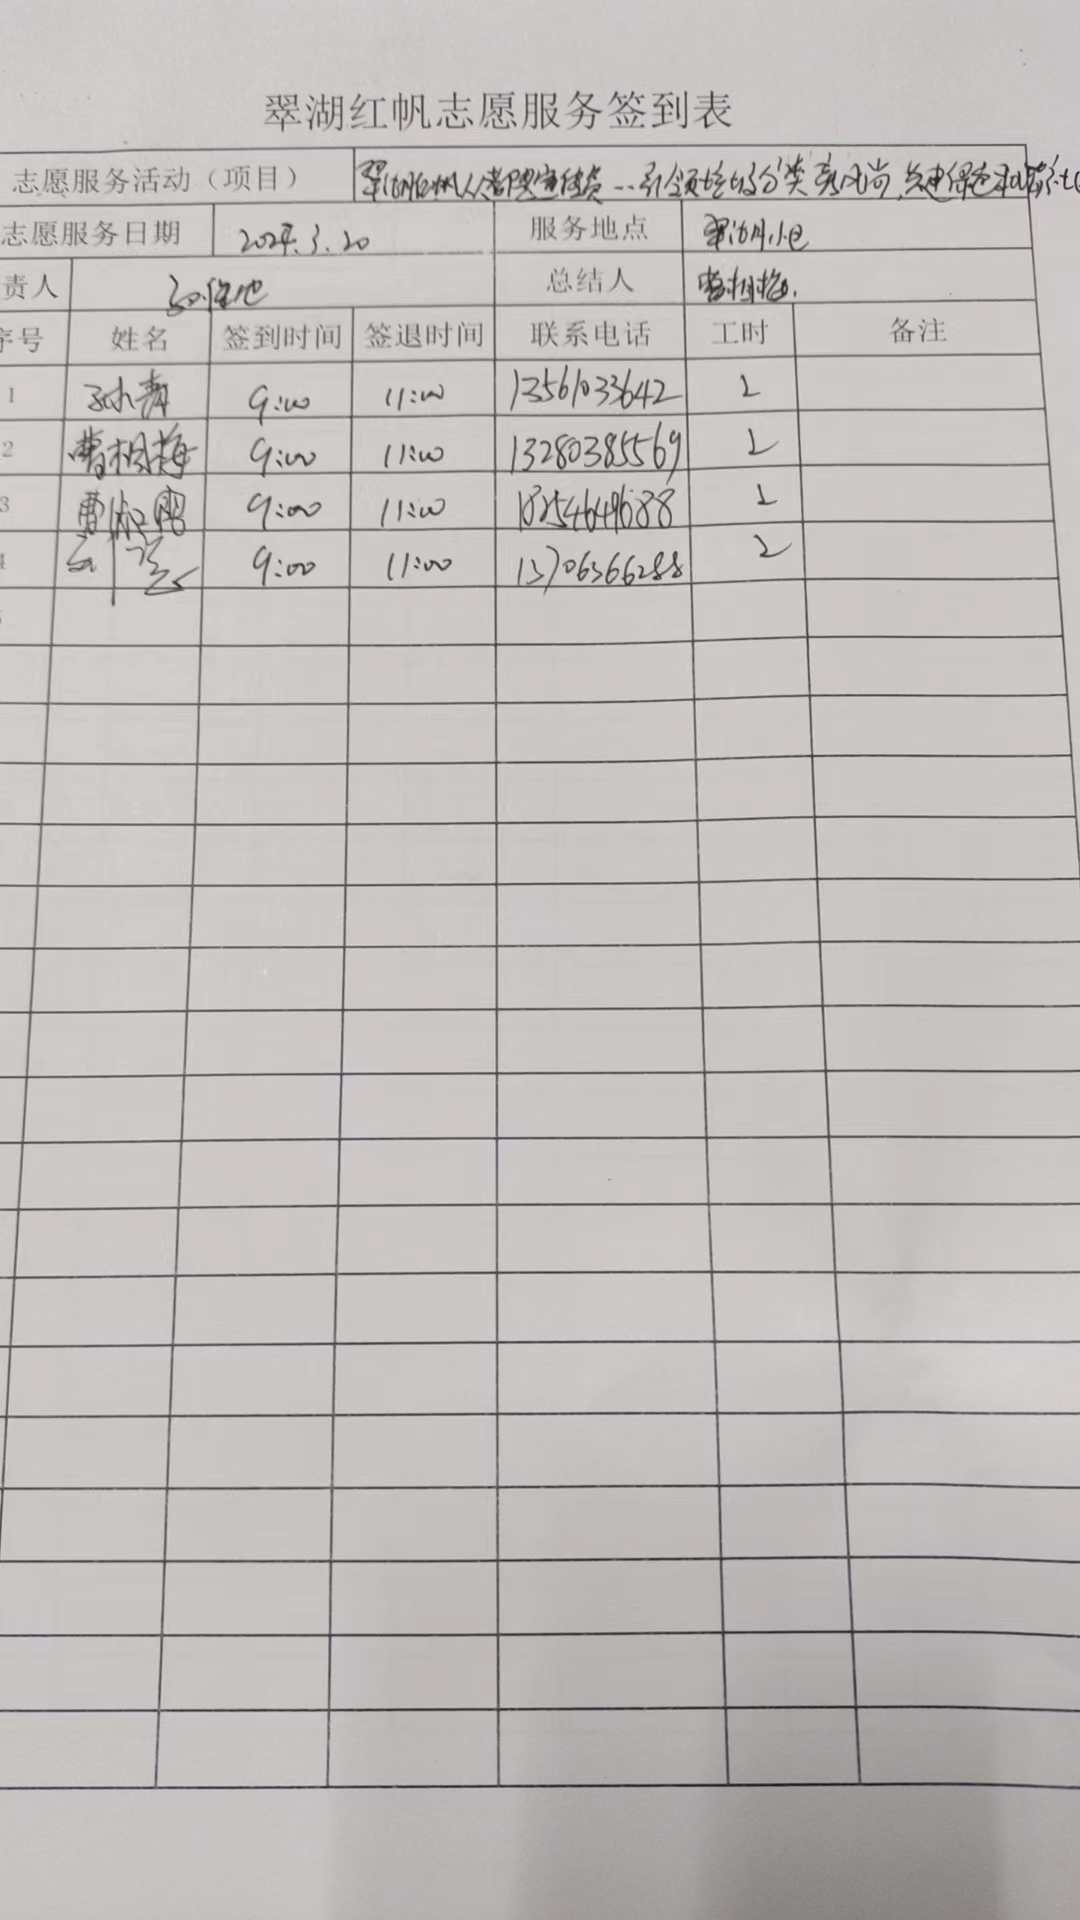 翠湖红帆志愿服务签到表
志愿服务活动（项目） 翠湖红帆人人都是宣传员...引领垃圾分类新风尚,共建绿色
志愿服务日期 2024.3.20 服务地点 翠湖小区
责人 总结人 曹相梅.
序号 姓名 签到时间 签退时间 联系电话 工时 备注
1 孙青 9:00 11:00 13561033642 2
2 曹相梅 9:00 11:00 13280385569 2
3 曹淑霞 9:00 11:00 18254649688 2
4 9:00 11:00 13706366288 2